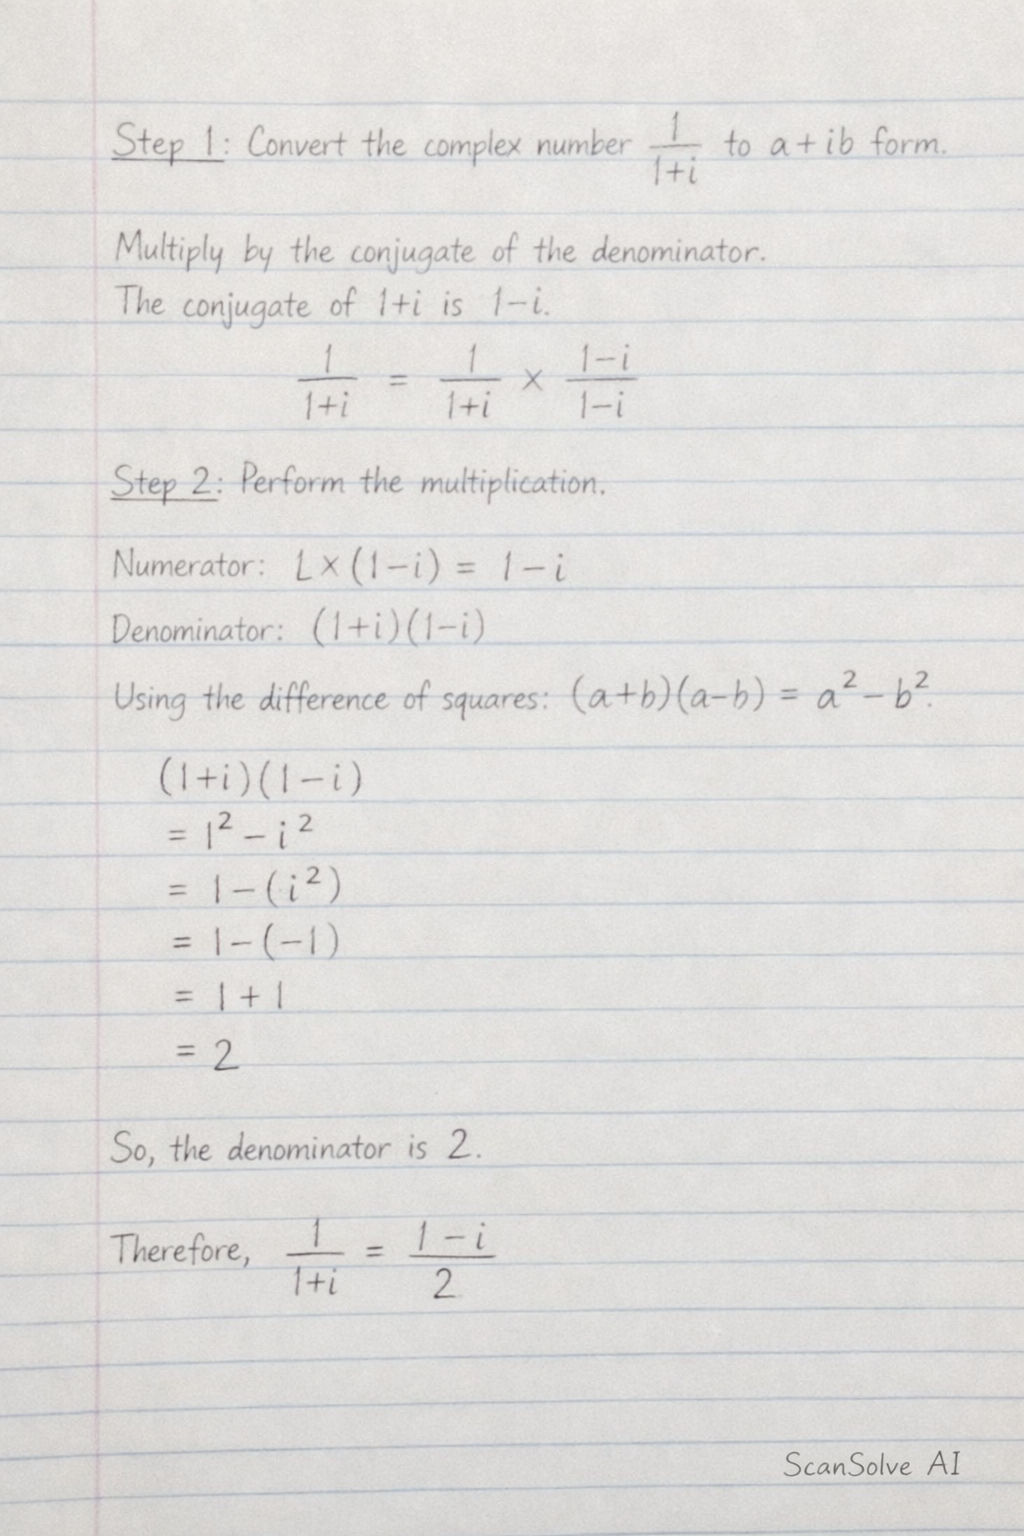 Step 1: Convert the complex number 1/(1+i) to a + ib form.
Multiply by the conjugate of the denominator.
The conjugate of 1+i is 1-i.
1/(1+i) = 1/(1+i) × (1-i)/(1-i)
Step 2: Perform the multiplication.
Numerator: 1 × (1-i) = 1-i
Denominator: (1+i)(1-i)
Using the difference of squares: (a+b)(a-b) = a² - b².
(1+i)(1-i)
= 1² - i²
= 1 - (i²)
= 1 - (-1)
= 1 + 1
= 2
So, the denominator is 2.
Therefore, 1/(1+i) = (1-i)/2
ScanSolve AI